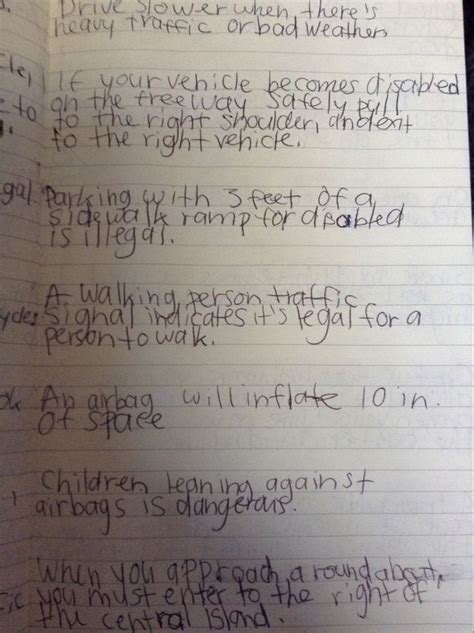 Drive slower when there's
heavy traffic or bad weather
cle,
If your vehicle becomes disabled
on the freeway safely pull
to
to the right shoulder, and exit
to the right vehicle.
gal Parking with 3 feet of a
sidewalk ramp for disabled
is illegal.
A walking person traffic
ycles signal indicates it's legal for a
person to walk.
An airbag will inflate 10 in.
of space
Children leaning against
airbags is dangerous.
When you approach a roundabout,
you must enter to the right of
the central island.